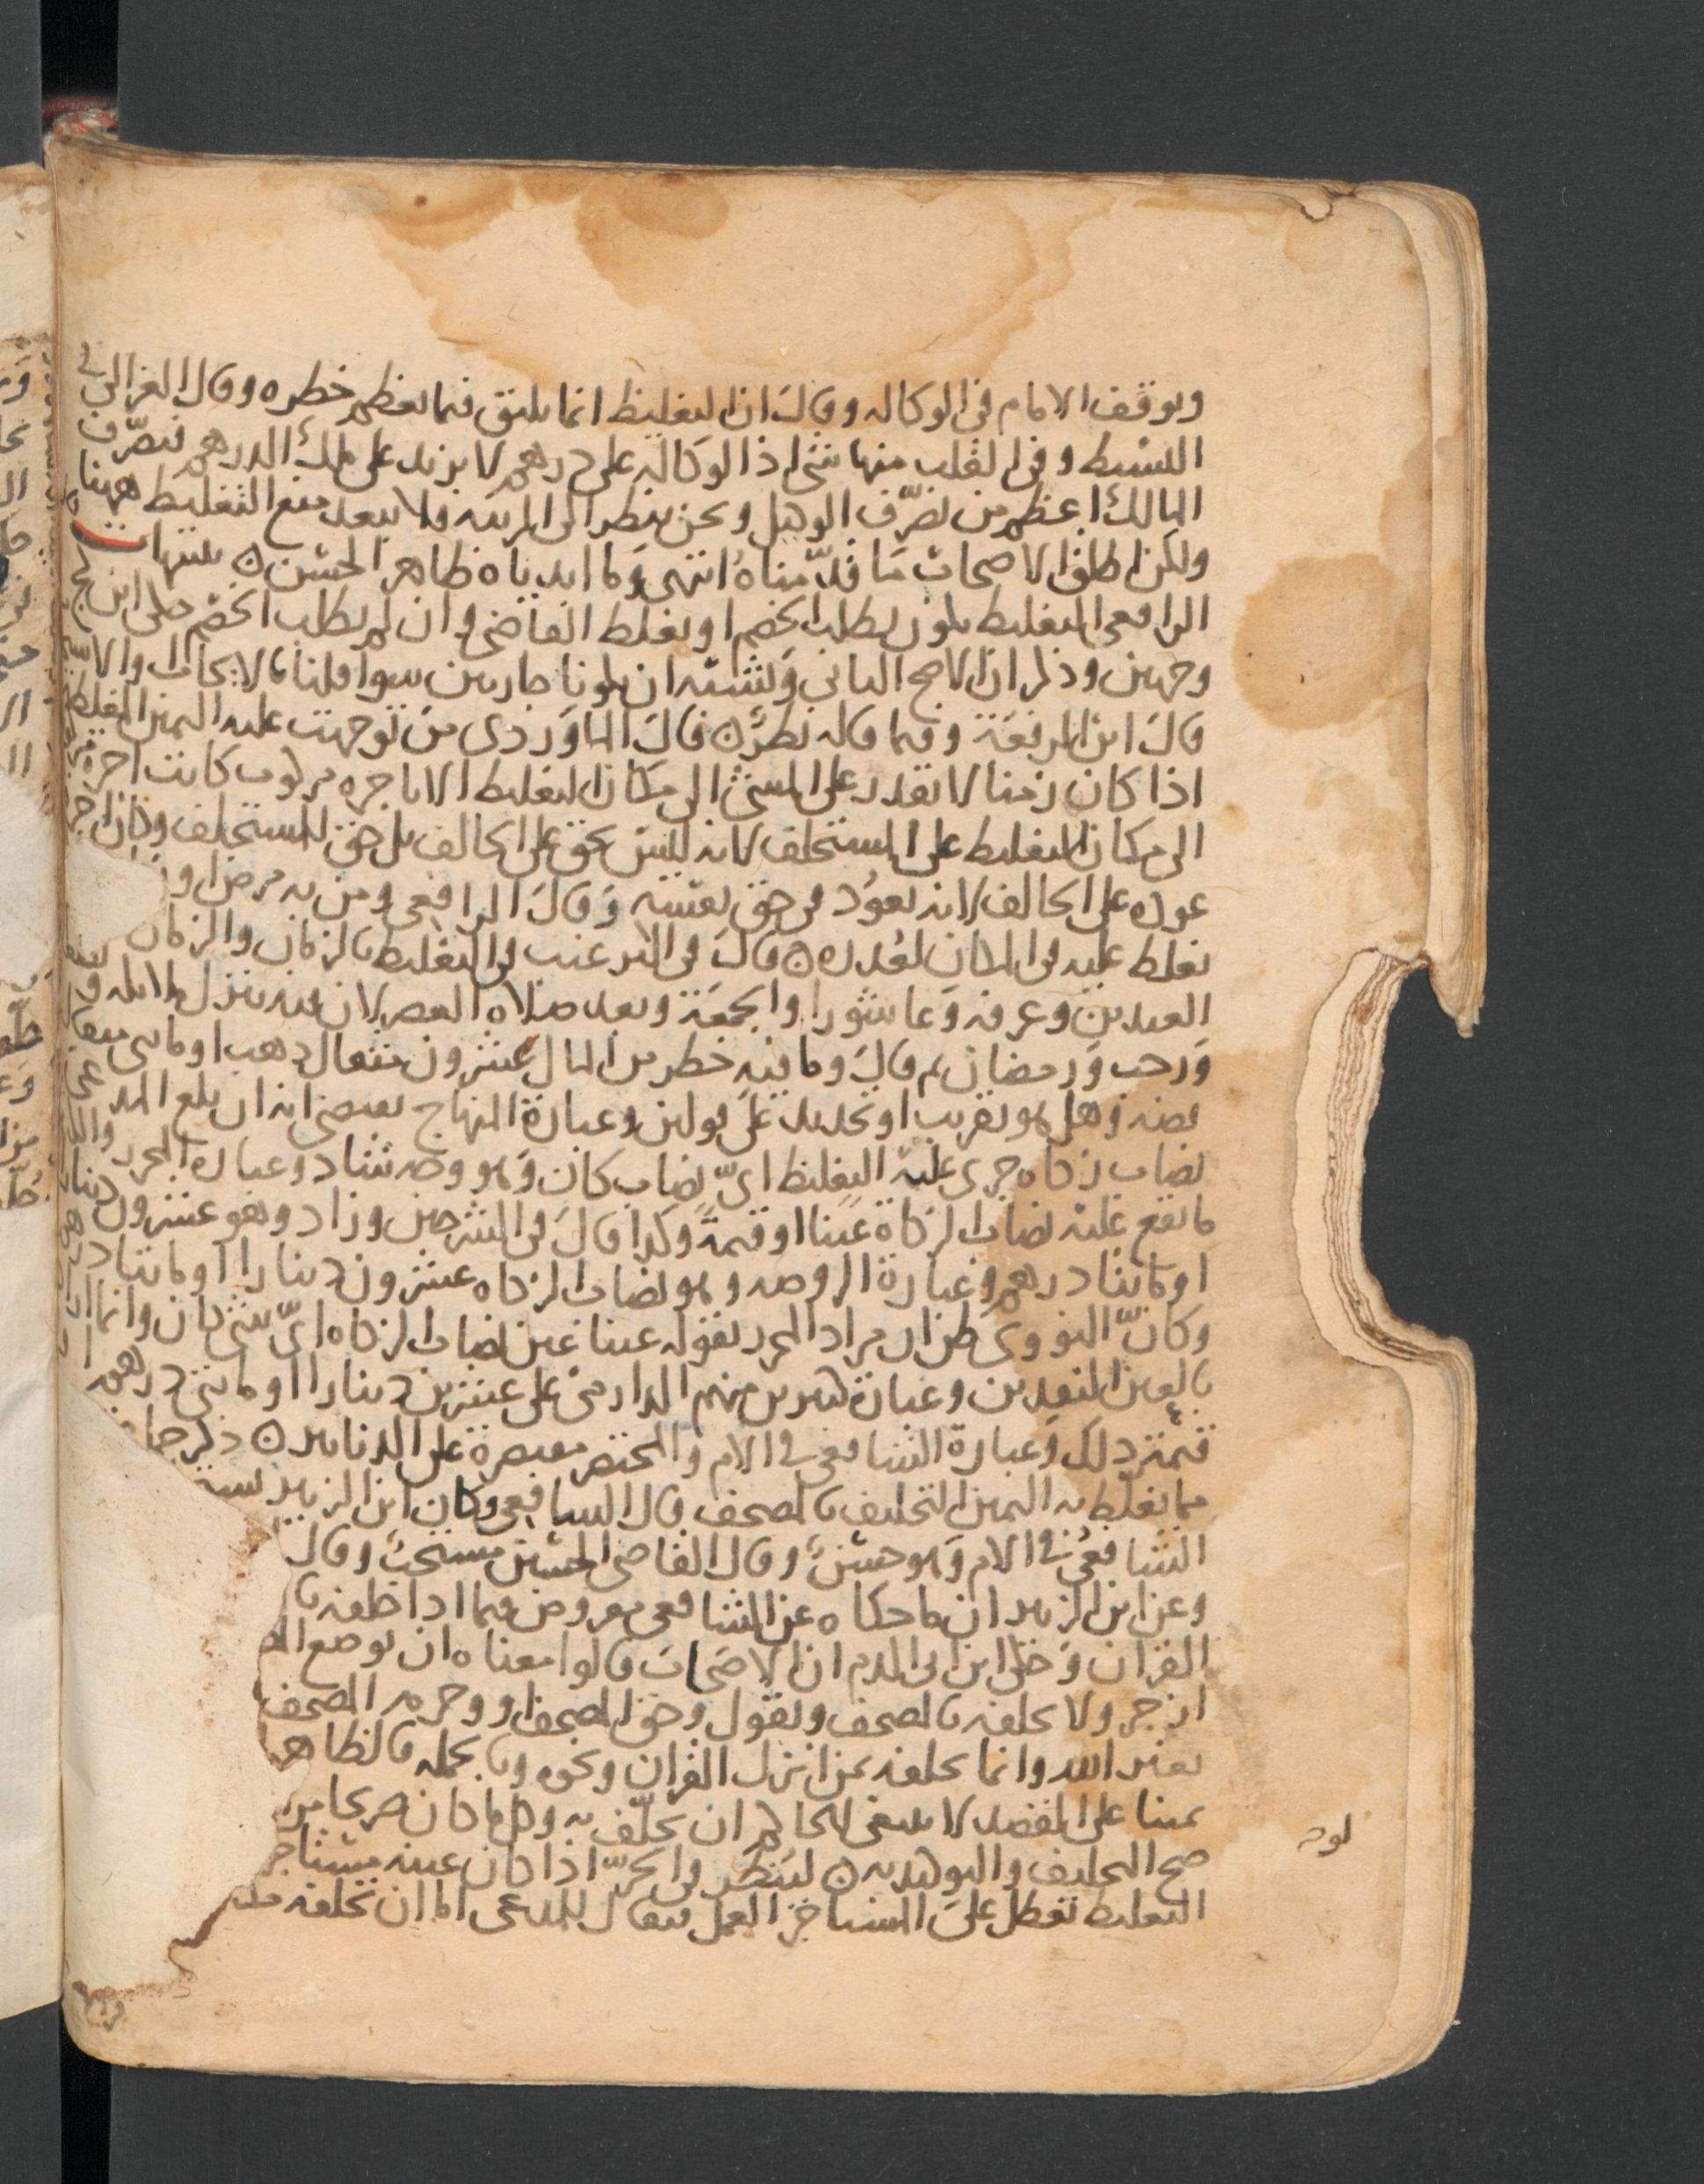 وتوقف الامام في الوكاله وقال ان التغليظ انما يليق فيما يعظم خطره وقال الغزالي في
البسيط وفي القلب منها شي اذ الوكاله على درهم لا يزيد على ملك الدرهم فتصرف
المالك اعظم من تصرف الوكيل ونحن ننظر الى المرتبه فلا يبعد منع التغليظ ههنا
ولكن اطلق الاصحاب ما قدمناه انتهى وما ابدياه ظاهر الحسن تنبيهات
الرافعي التغليظ يكون بطلب الخصم او يغلظ القاضي وان لم يطلب الخصم حكى ابن كج
وجهين وذكر ان الاصح الثاني ويشبه ان يكونا جاريين سوا قلنا بالايجاب او الا
قال ابن الرفعة وفيما قاله نظر قال الماوردي من توجهت عليه اليمين المغلظه
اذا كان زمنا لا يقدر على المشي الى مكان التغليظ الا باجره مركوب كانت اجره
الى مكان التغليظ على المستحلف لانه ليس بحق على الحالف بل حق للمستحلف وكان اجر
عوده على الحالف لانه يعود في حق نفسه وقال الرافعي ومن به مرض او
يغلظ عليه في المكان لعذره قال في الترغيب في التغليظ بالزمان والزمان
العيدين وعرفه وعاشورا والجمعة وبعد صلاه العصر لان فيه ينزل ملايكه
ورجب ورمضان ثم قال وما فيه خطر من المال عشرون مثقال ذهب او مايتي
فضه وهل هو تقريب او تحديد على قولين وعبارة المنهاج تقتضي انه ان بلغ المدعى
نصاب زكاه جرى عليه التغليظ اي نصاب كان وهو وجه شاذ وعباره المحرر
ما يقع عليه نصاب الزكاة عينا او قيمة وكذا قال في الشرحين وزاد وهو عشرون دينارا
او مايتا درهم وعبارة الروضه وهو نصاب الزكاه عشرون دينارا او مايتا درهم
وكان النووي ظن ان مراد المحرر بقوله عينا عين نصاب الزكاه اي شي كان وانما
بالعين النقدين وعبارة كثيرين منهم الدارمي على عشرين دينارا او مايتي درهم
قيمته ذلك وعبارة الشافعي في الام والمختصر مقتصرة على الدنانير ذكر
مما يغلظ به اليمين التحليف بالمصحف قال الشافعي وكان ابن الزبير
الشافعي في الام وهو حسن وقال القاضي الحسين مستحب وقال
وعن ابن الزبير ان ما حكاه عن الشافعي مفروض فيما اذا حلفه
القران وحكى ابن ابي الدم ان الاصحاب قالوا معناه ان يوضع
ازجر ولا يحلفه بالمصحف ويقول وحق المصحف او وحرمه المصحف
بغير الله وانما يحلفه بمن انزل القران ونحوه وبالجمله فالظاهر
يمينا على المقصد لا ينبغي للحاكم ان يحلف به وكل ما كان صريحا
صح التحليف والتوكيد به لينظر في الحر اذا كان عينه مستاجر
التغليظ تعطل على المستاجر العمل فيقال للمدعي اما ان تحلفه